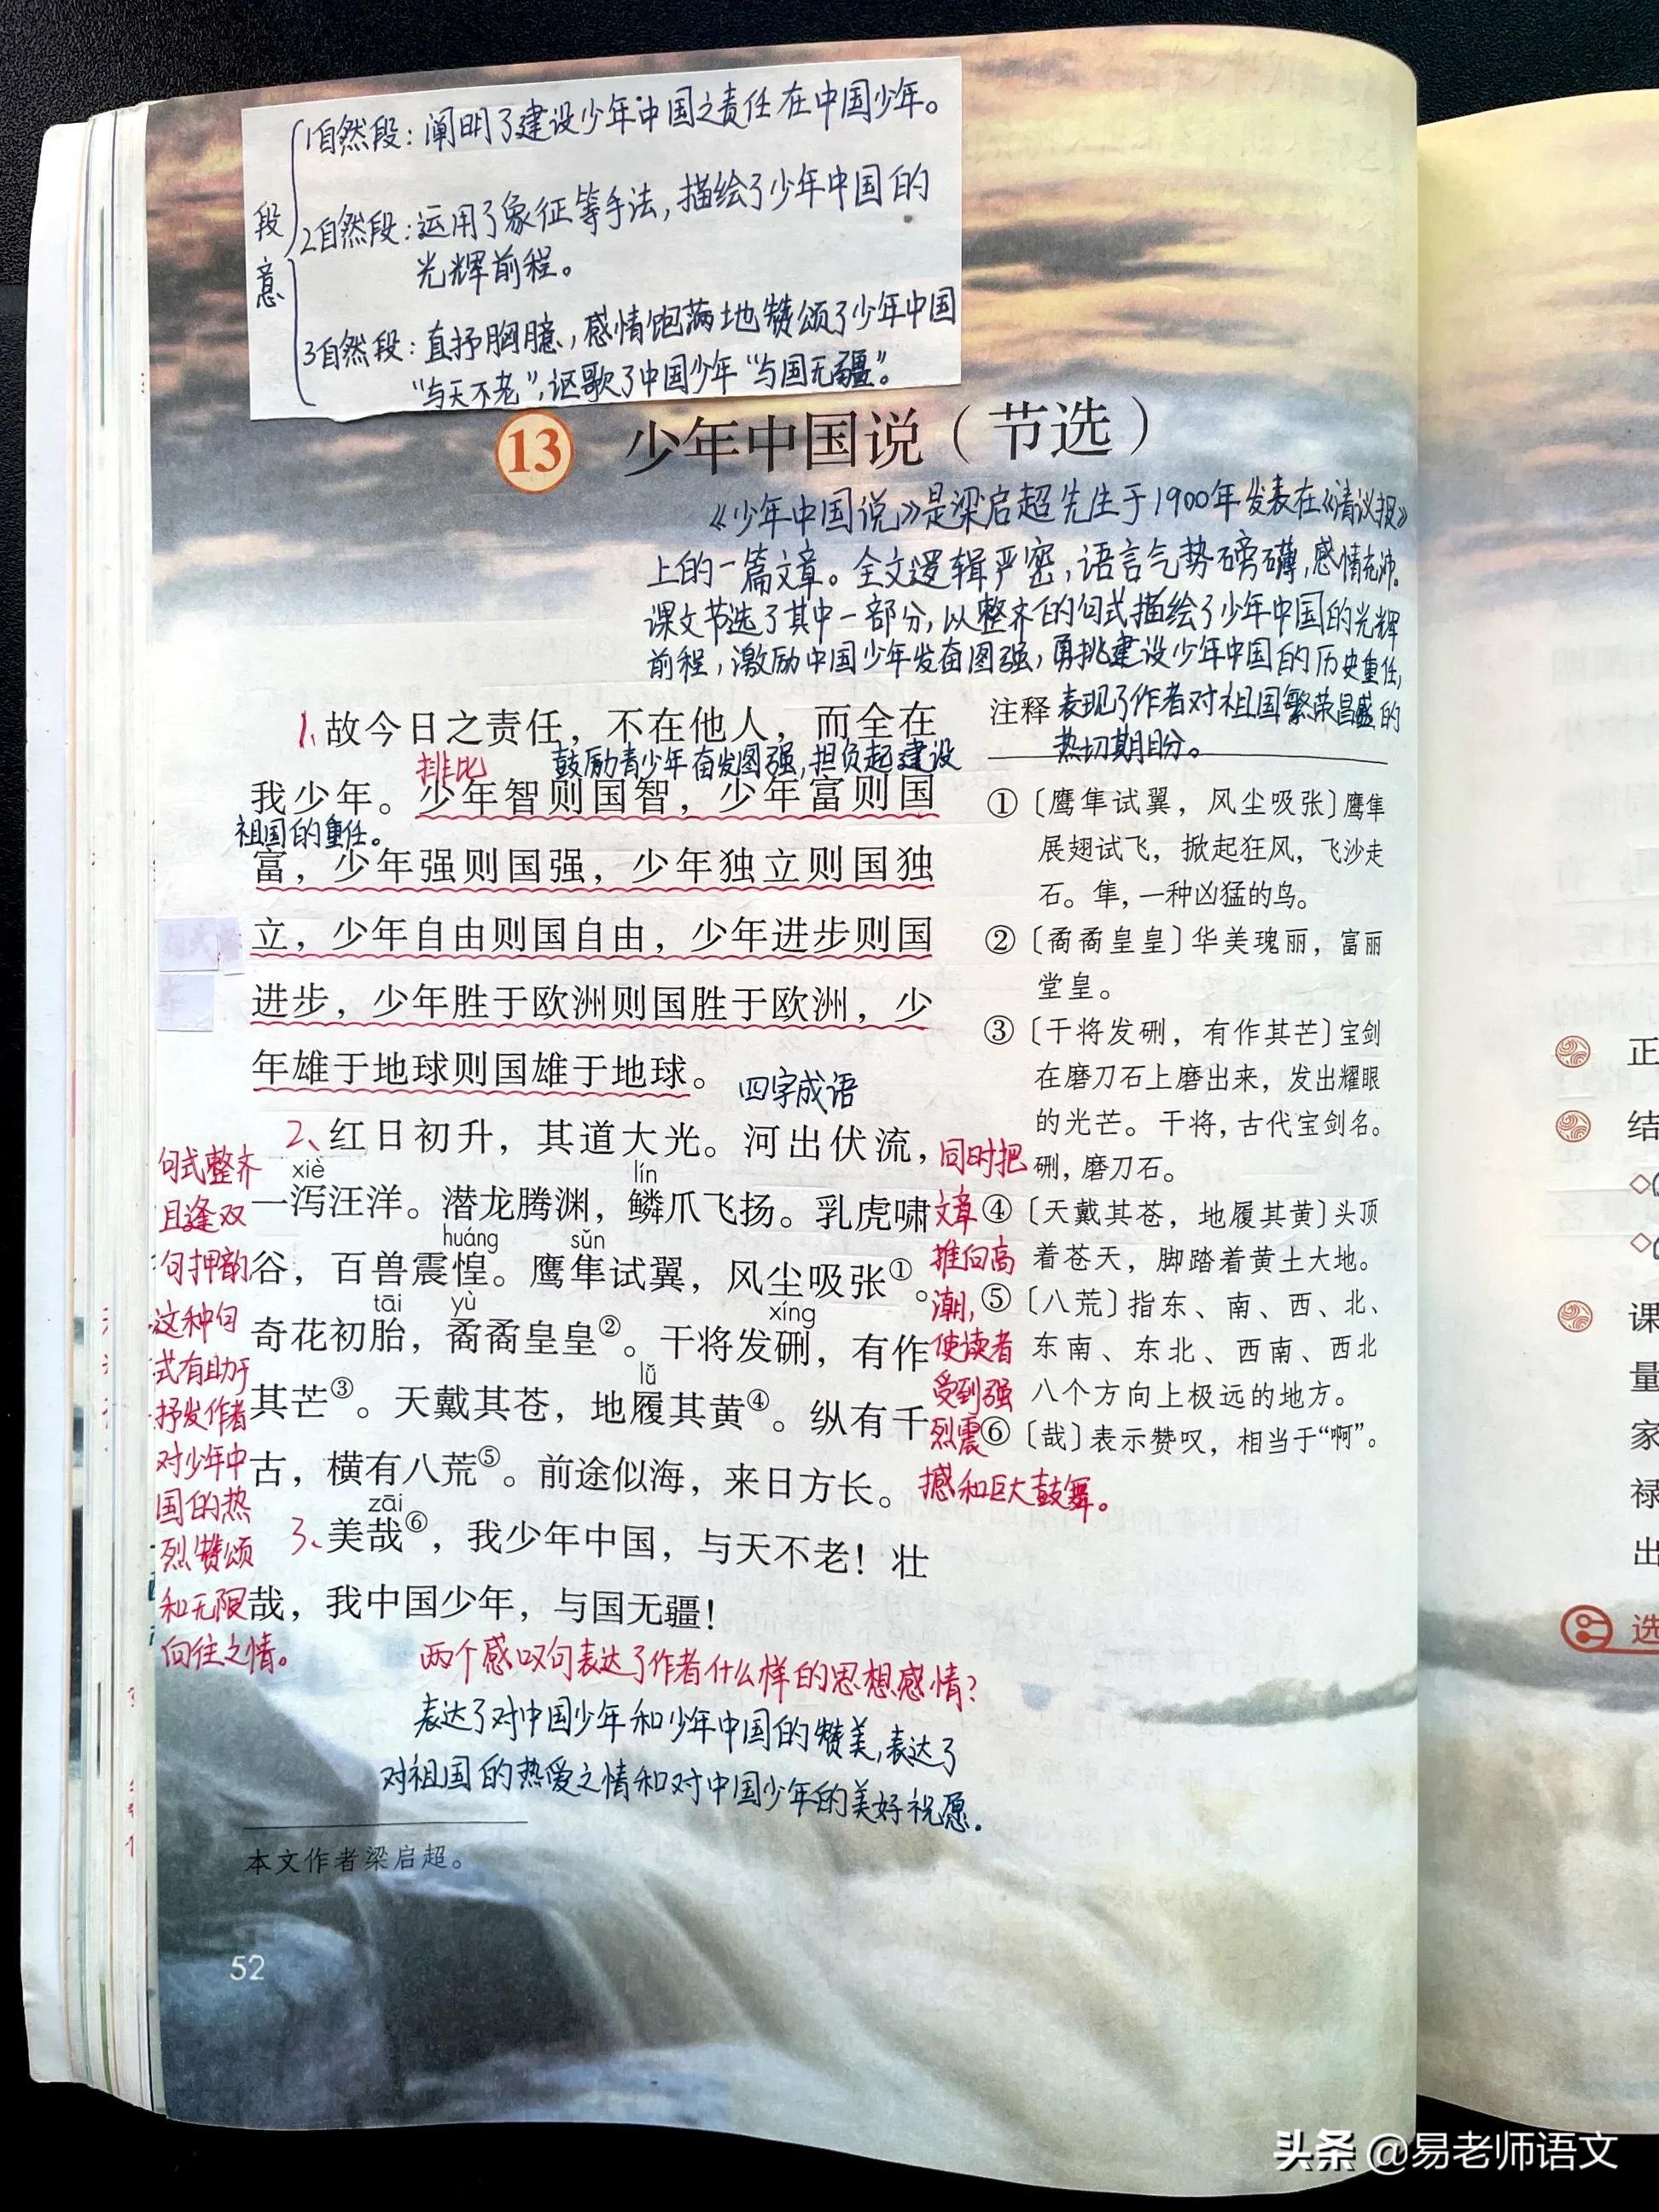 段意
1自然段：阐明了建设少年中国之责任在中国少年。
2自然段：运用了象征等手法，描绘了少年中国的
光辉前程。
3自然段：直抒胸臆，感情饱满地赞颂了少年中国
“与天不老”，讴歌了中国少年“与国无疆”。
13 少年中国说（节选）
《少年中国说》是梁启超先生于1900年发表在《清议报》
上的一篇文章。全文逻辑严密，语言气势磅礴，感情充沛。
课文节选了其中一部分，以整齐的句式描绘了少年中国的光辉
前程，激励中国少年发奋图强，勇挑建设少年中国的历史重任，
表现了作者对祖国繁荣昌盛的
热切期盼。
1、故今日之责任，不在他人，而全在
排比 鼓励青少年奋发图强，担负起建设
我少年。少年智则国智，少年富则国
祖国的重任。
富，少年强则国强，少年独立则国独
立，少年自由则国自由，少年进步则国
进步，少年胜于欧洲则国胜于欧洲，少
年雄于地球则国雄于地球。
四字成语
2、红日初升，其道大光。河出伏流，
xiè lín
一泻汪洋。潜龙腾渊，鳞爪飞扬。乳虎啸
huáng sǔn
谷，百兽震惶。鹰隼试翼，风尘吸张①。
tāi yù xíng
奇花初胎，矞矞皇皇②。干将发硎，有作
lǚ
其芒③。天戴其苍，地履其黄④。纵有千
古，横有八荒⑤。前途似海，来日方长。
zāi
3、美哉⑥，我少年中国，与天不老！壮
哉，我中国少年，与国无疆！
句式整齐
且逢双
句押韵
这种句
式有助于
抒发作者
对少年中
国的热
烈赞颂
和无限
向往之情。
同时把
文章
推向高
潮，
使读者
受到强
烈震
撼和巨大鼓舞。
两个感叹句表达了作者什么样的思想感情？
表达了对中国少年和少年中国的赞美，表达了
对祖国的热爱之情和对中国少年的美好祝愿。
注释
①〔鹰隼试翼，风尘吸张〕鹰隼
展翅试飞，掀起狂风，飞沙走
石。隼，一种凶猛的鸟。
②〔矞矞皇皇〕华美瑰丽，富丽
堂皇。
③〔干将发硎，有作其芒〕宝剑
在磨刀石上磨出来，发出耀眼
的光芒。干将，古代宝剑名。
硎，磨刀石。
④〔天戴其苍，地履其黄〕头顶
着苍天，脚踏着黄土大地。
⑤〔八荒〕指东、南、西、北、
东南、东北、西南、西北
八个方向上极远的地方。
⑥〔哉〕表示赞叹，相当于“啊”。
本文作者梁启超。
52
正
结
课
量
家
禄
出
选
头条 @易老师语文